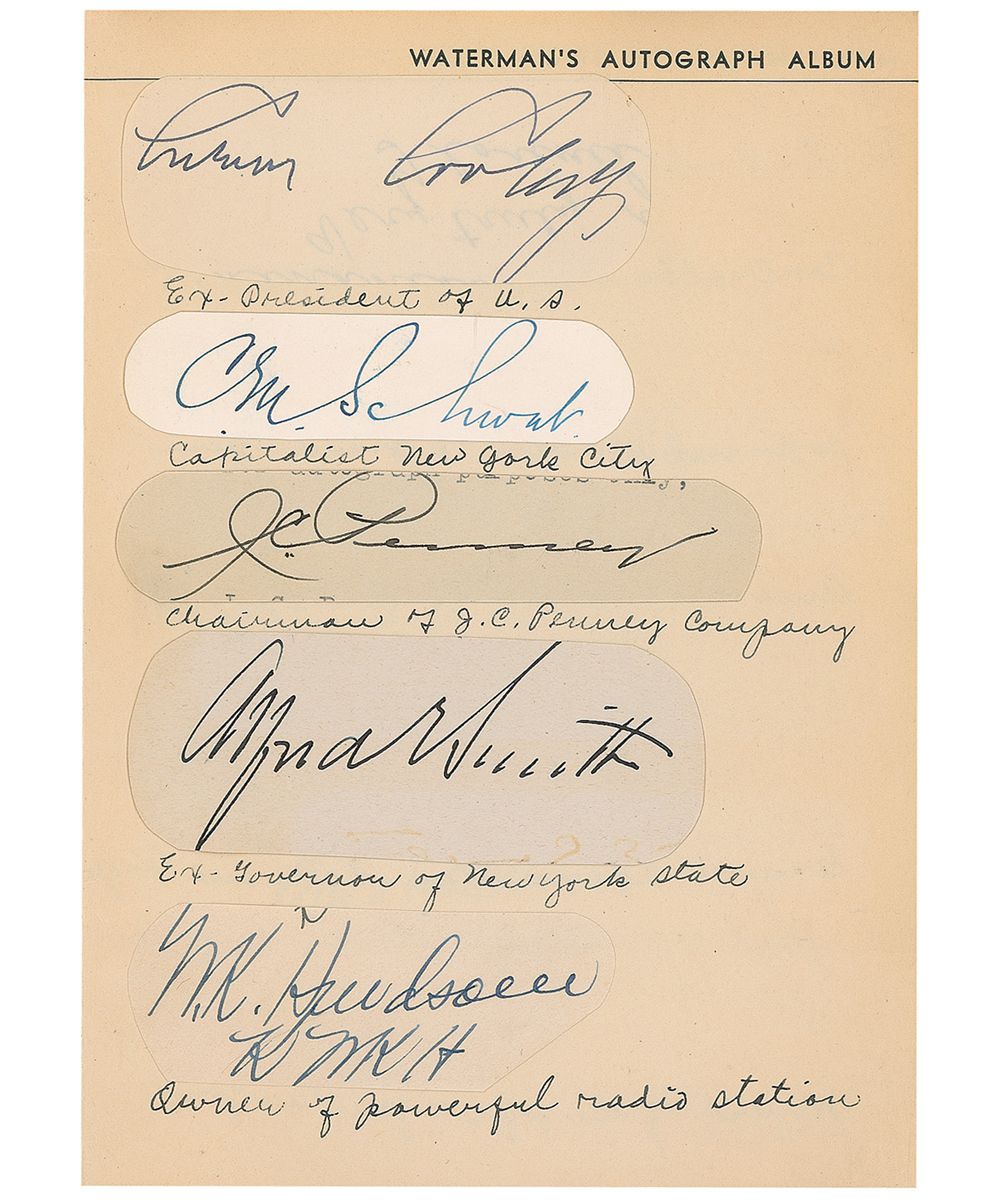 WATERMAN'S AUTOGRAPH ALBUM
Calvin Coolidge
Ex-President of U.S.
C.M. Schwab.
Capitalist New York City
autograph purposes only,
J.C. Penney
Chairman of J.C. Penney Company
Alfred E Smith
Ex-Governor of New York State
W.K. Henderson
KWKH
Owner of powerful radio station